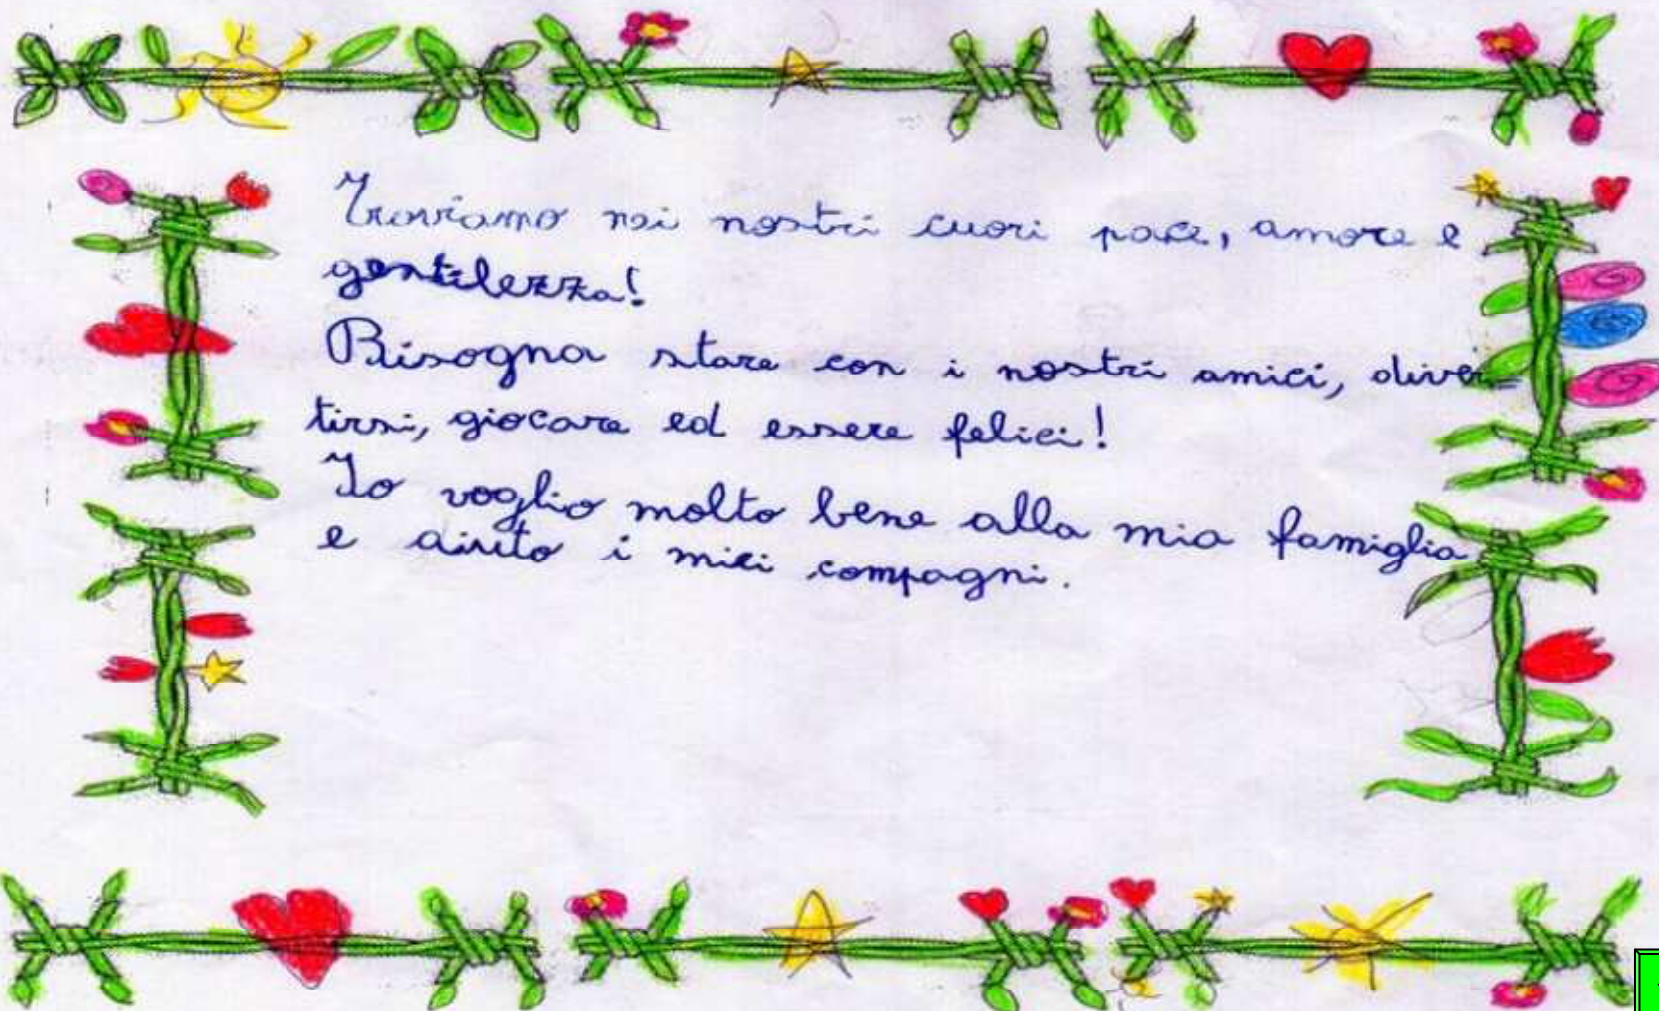 Troviamo nei nostri cuori pace, amore e
gentilezza!
Bisogna stare con i nostri amici, diver-
tirsi, giocare ed essere felici!
Io voglio molto bene alla mia famiglia
e aiuto i miei compagni.